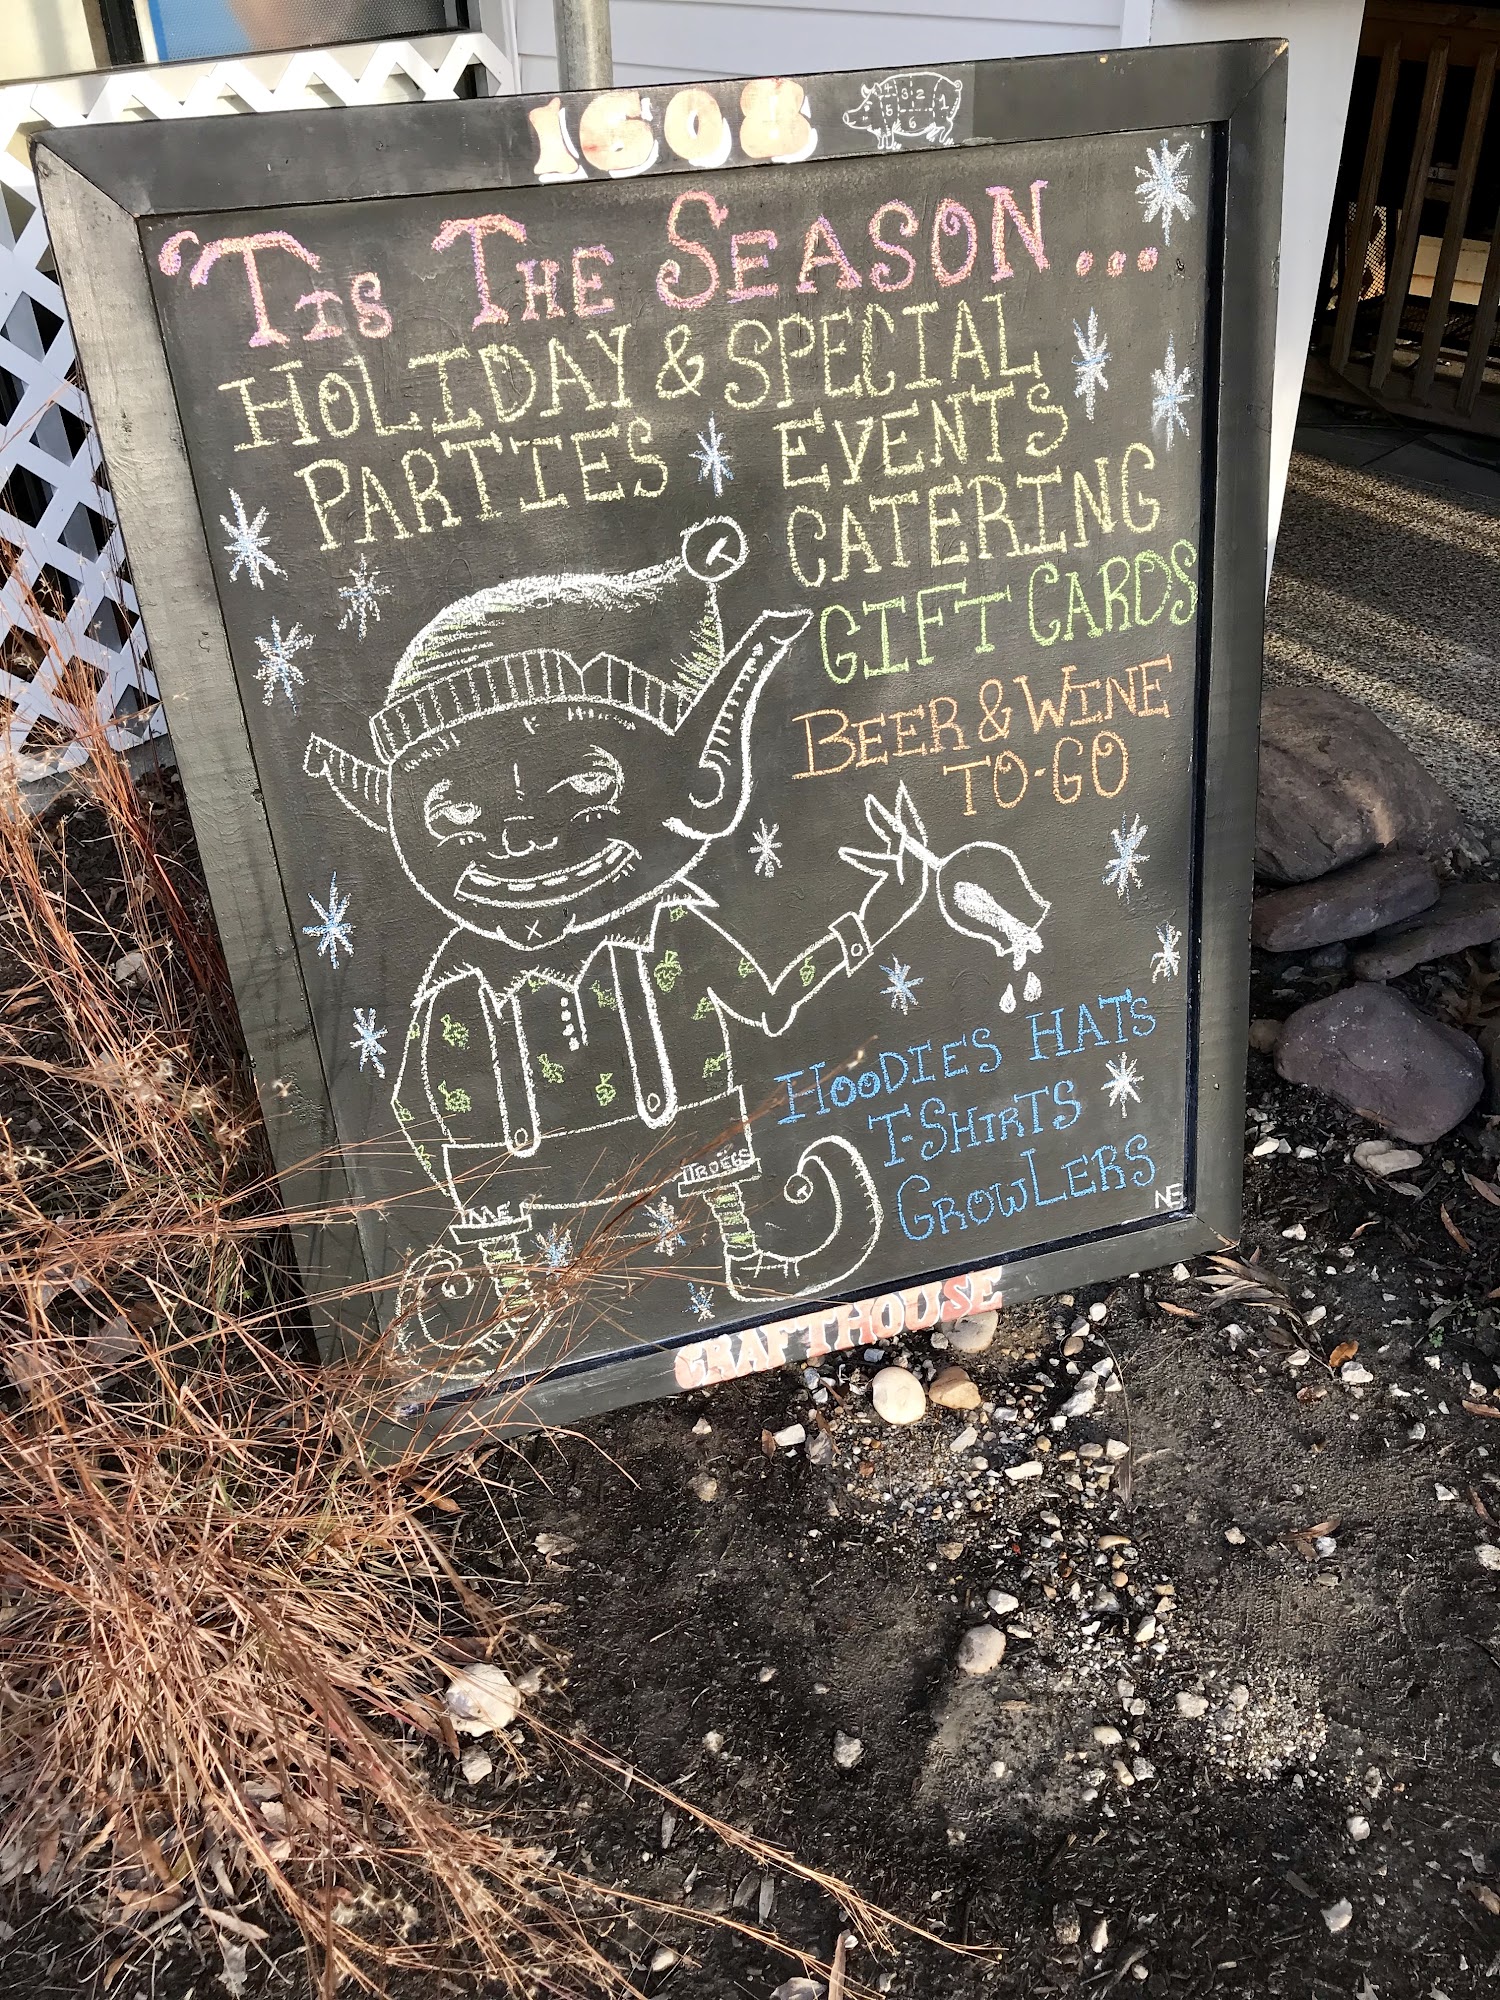 1608
4 3 2 1
5 6
'Tis The Season...
Holiday & Special
Parties Events
Catering
Gift Cards
Beer & Wine
To-Go
Hoodie's Hat's
T-Shirts
Growlers
Troegs
NE
Crafthouse